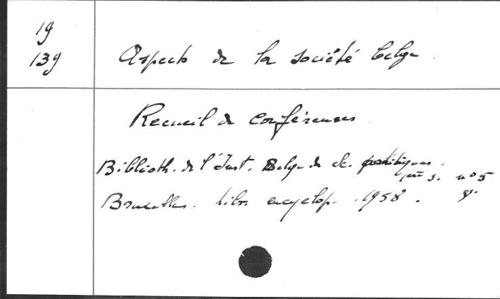 19
139
Aspects de la société belge
Recueil de conférences
Biblioth. de l'Inst. Belge de Sc. politiques.
n° 5
Bruxelles. Libr. encyclop. 1958. 8°.